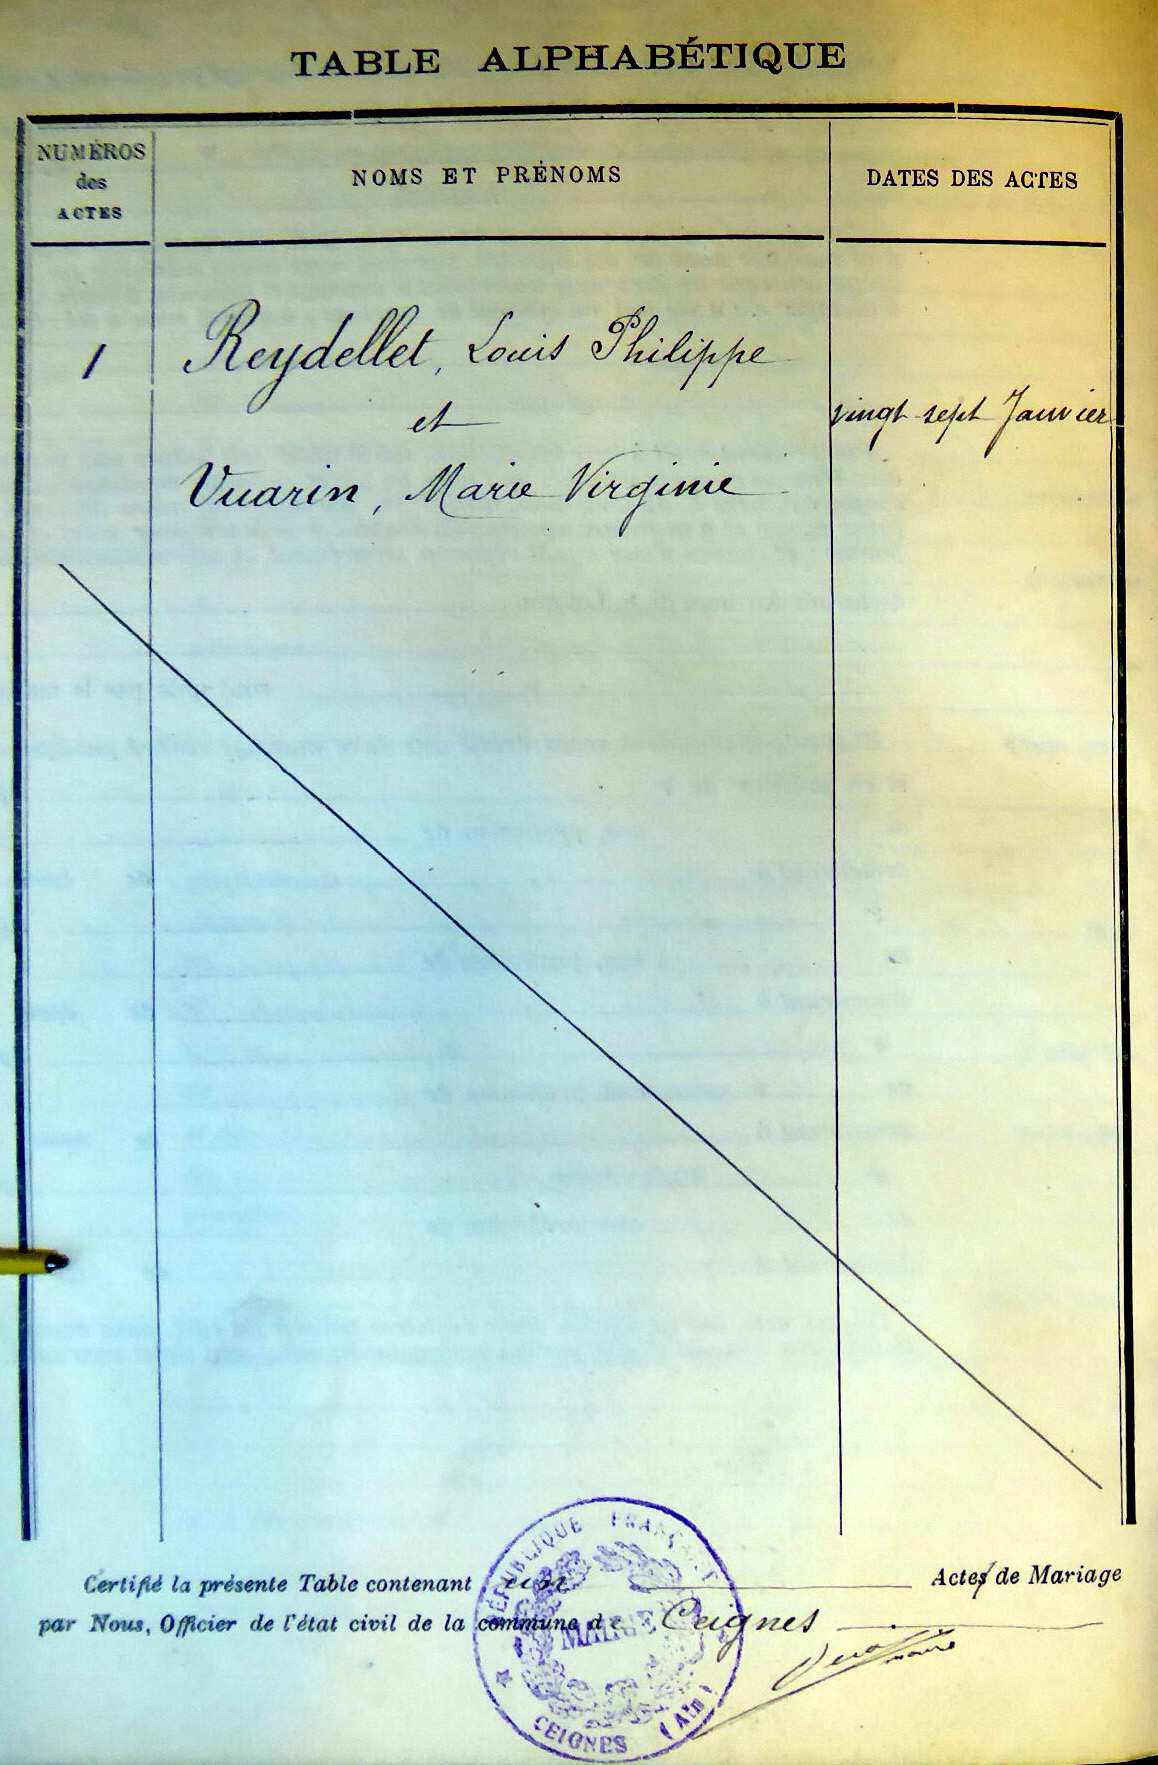 TABLE ALPHABÉTIQUE
NUMÉROS
des
ACTES
NOMS ET PRÉNOMS
DATES DES ACTES
1
Reydellet, Louis Philippe
et
vingt sept Janvier
Vuarin, Marie Virginie
Certifié la présente Table contenant un Actes de Mariage
par Nous, Officier de l'état civil de la commune de Ceignes
maire
RÉPUBLIQUE FRANÇAISE
MAIRIE
CEIGNES (Ain)